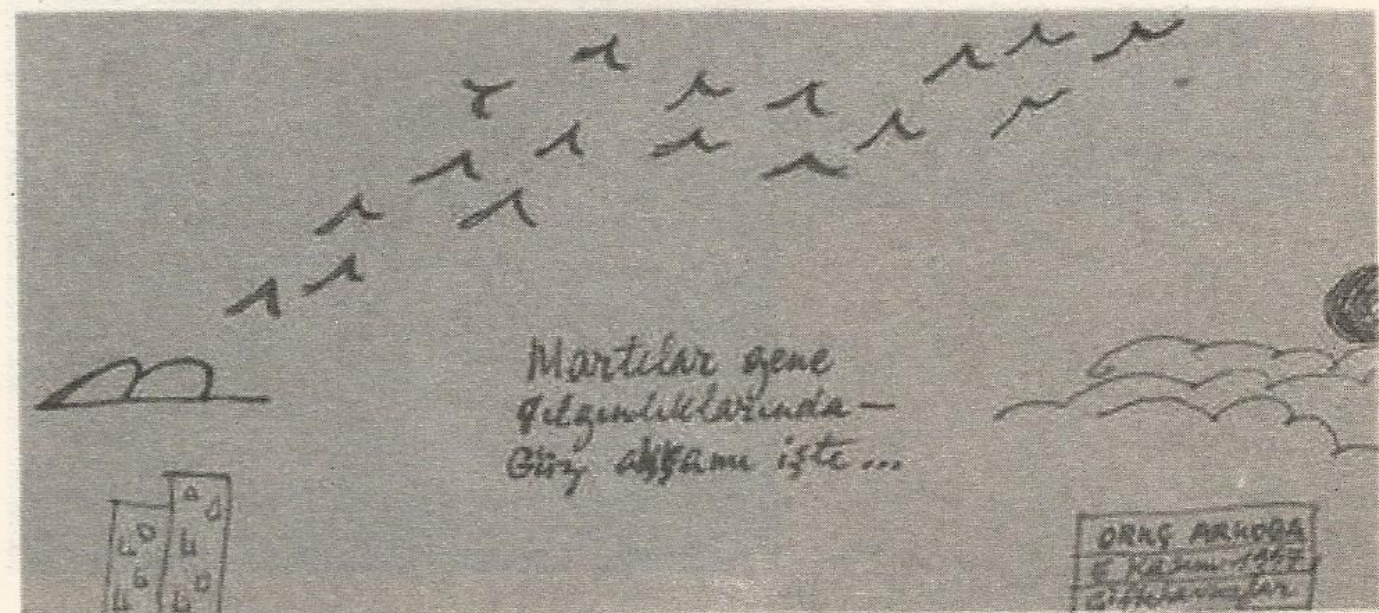 Martılar gene
çılgınlıklarında —
Güz akşamı işte...
ORUÇ ARUOBA
Kasım 1997